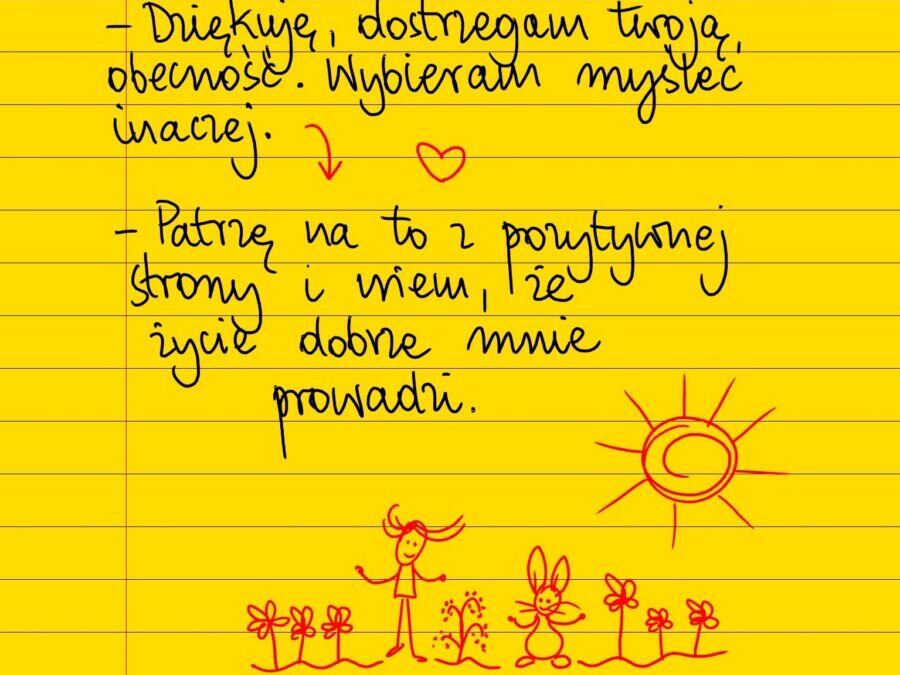 - Dziękuję, dostrzegam twoją
obecność. Wybieram myśleć
inaczej.
- Patrzę na to z pozytywnej
strony i wiem, że
życie dobrze mnie
prowadzi.